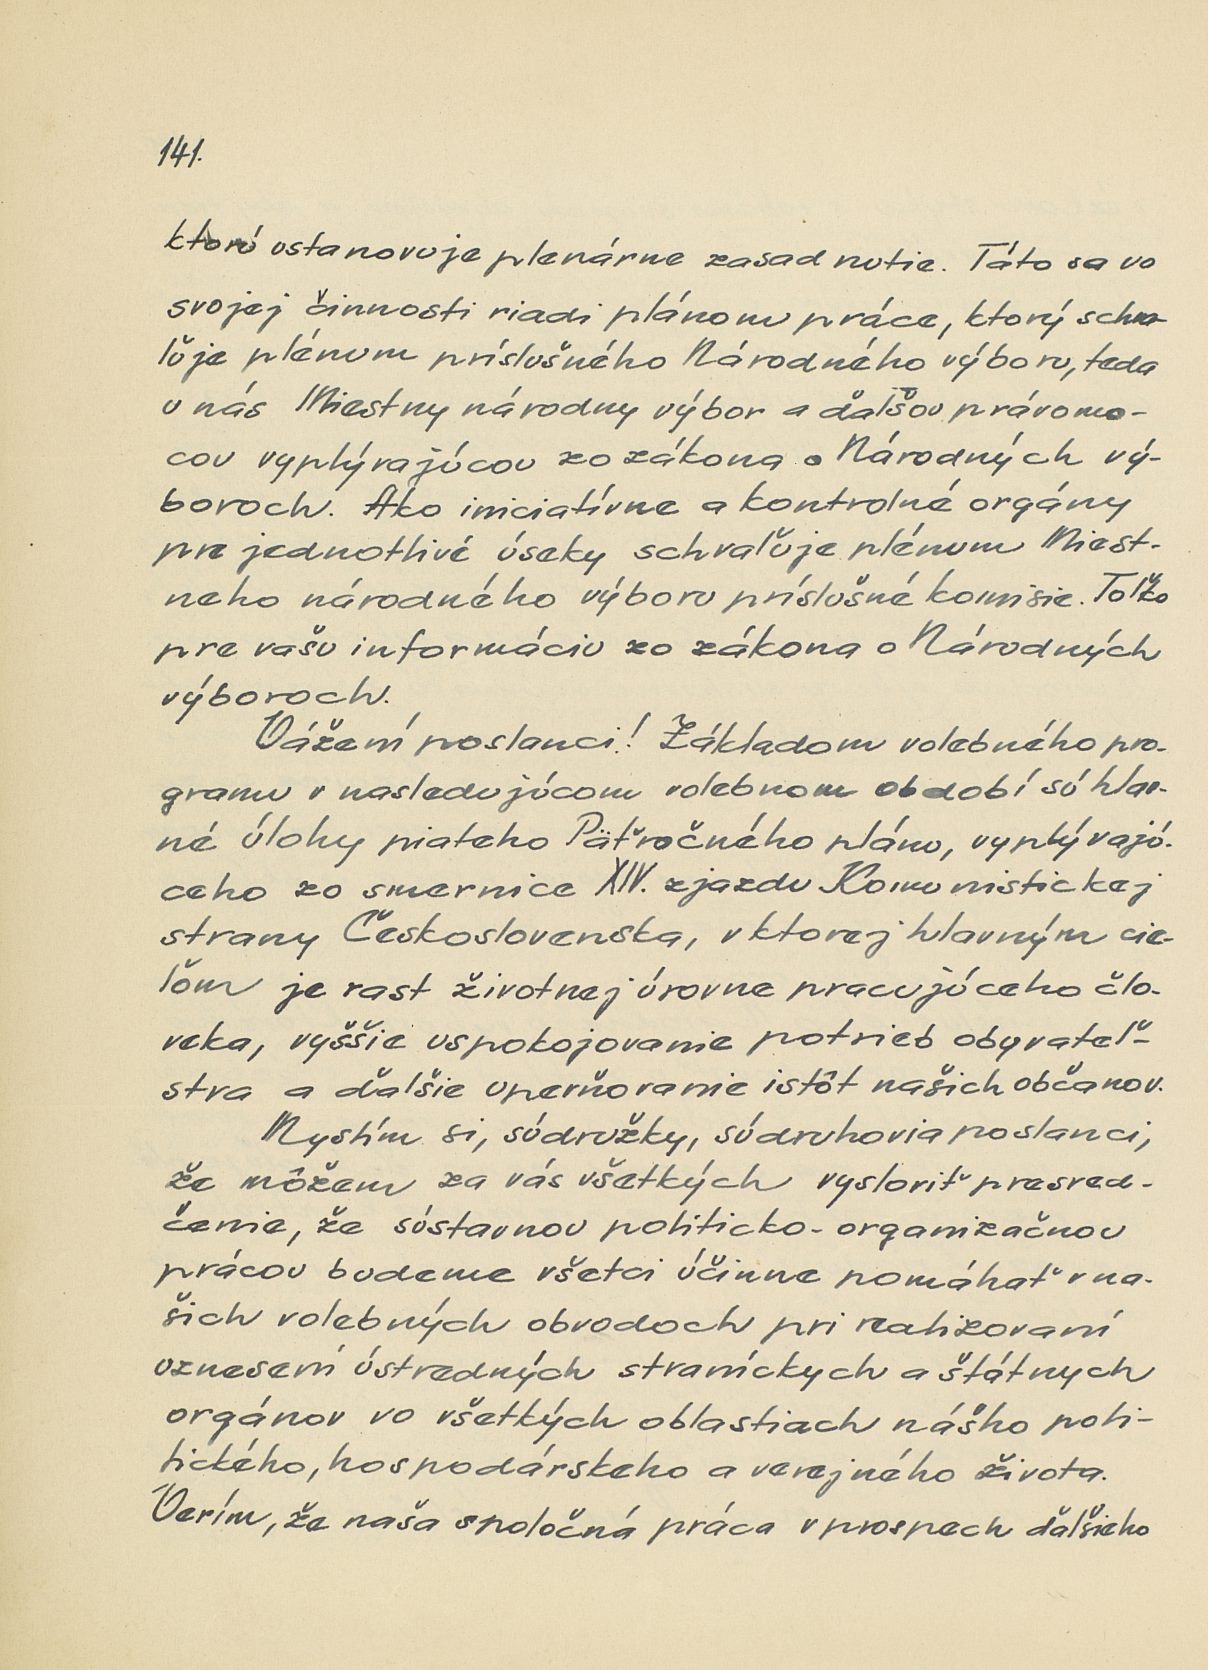 141.
ktorú ustanovuje plenárne zasadnutie. Táto sa vo
svojej činnosti riadi plánom práce, ktorý schva-
ľuje plénum príslušného Národného výboru, teda
u nás Miestny národny výbor a ďalšou právomo-
cou vyplývajúcou zo zákona o Národných vý-
boroch. Ako iniciatívne a kontrolné orgány
pre jednotlivé úseky schvaľuje plénum Miest-
neho národného výboru príslušné komisie. Toľko
pre vašu informáciu zo zákona o Národných
výboroch.
Vážení poslanci! Základom volebného pro-
gramu v nasledujúcom volebnom období sú hlav-
né úlohy piateho Päťročného plánu, vyplývajú-
ceho zo smernice XIV. zjazdu Komunistickej
strany Československa, v ktorej hlavným cie-
ľom je rast životnej úrovne pracujúceho člo-
veka, vyššie uspokojovanie potrieb obyvateľ-
stva a ďalšie upevňovanie istôt našich občanov.
Myslím si, súdružky, súdruhovia poslanci,
že môžem za vás všetkých vysloviť presved-
čenie, že sústavnou politicko-organizačnou
prácou budeme všetci účinne pomáhať v na-
šich volebných obvodoch pri realizovaní
uznesení ústredných straníckych a štátnych
orgánov vo všetkých oblastiach nášho poli-
tického, hospodárskeho a verejného života.
Verím, že naša spoločná práca v prospech ďalšieho